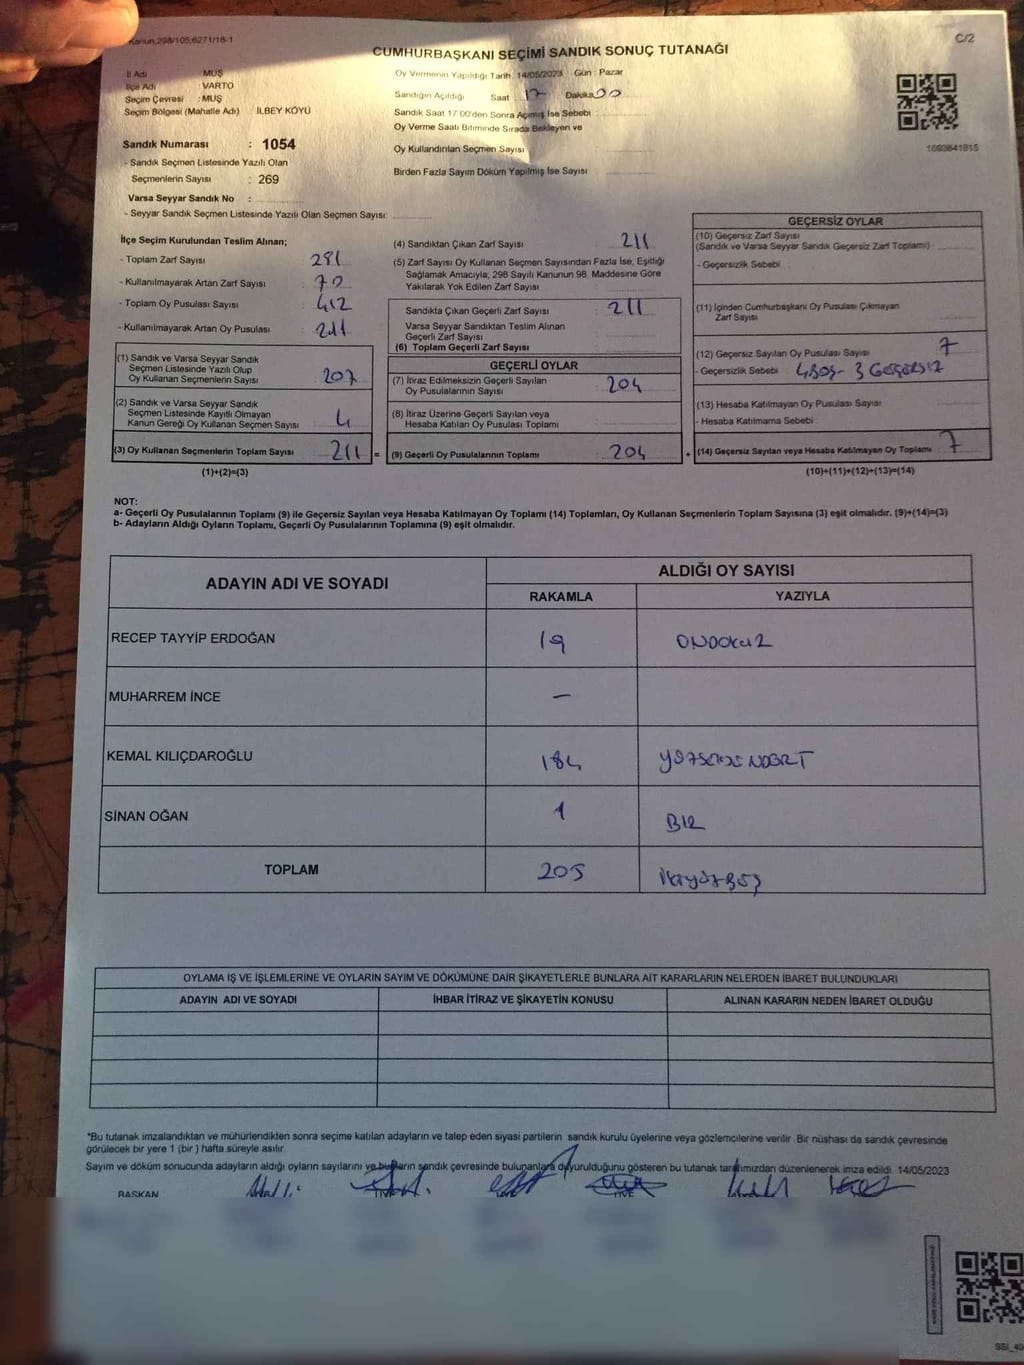 Kanun:298/105,6271/18-1
C/2
CUMHURBAŞKANI SEÇİMİ SANDIK SONUÇ TUTANAĞI
İl Adı : MUŞ
İlçe Adı : VARTO
Seçim Çevresi : MUŞ
Seçim Bölgesi (Mahalle Adı) İLBEY KÖYÜ
Sandık Numarası : 1054
- Sandık Seçmen Listesinde Yazılı Olan
Seçmenlerin Sayısı : 269
Varsa Seyyar Sandık No :
- Seyyar Sandık Seçmen Listesinde Yazılı Olan Seçmen Sayısı:
Oy Vermenin Yapıldığı Tarih: 14/05/2023 Gün : Pazar
Sandığın Açıldığı Saat : 17 Dakika 00
Sandık Saat 17.00'den Sonra Açılmış İse Sebebi :
Oy Verme Saati Bitiminde Sırada Bekleyen ve
Oy Kullandırılan Seçmen Sayısı :
Birden Fazla Sayım Döküm Yapılmış İse Sayısı :
1093841815
İlçe Seçim Kurulundan Teslim Alınan;
- Toplam Zarf Sayısı : 281
- Kullanılmayarak Artan Zarf Sayısı : 70
- Toplam Oy Pusulası Sayısı : 412
- Kullanılmayarak Artan Oy Pusulası : 211
(1) Sandık ve Varsa Seyyar Sandık
Seçmen Listesinde Yazılı Olup
Oy Kullanan Seçmenlerin Sayısı : 207
(2) Sandık ve Varsa Seyyar Sandık
Seçmen Listesinde Kayıtlı Olmayan
Kanun Gereği Oy Kullanan Seçmen Sayısı : 4
(3) Oy Kullanan Seçmenlerin Toplam Sayısı : 211 =
(1)+(2)=(3)
(4) Sandıktan Çıkan Zarf Sayısı : 211
(5) Zarf Sayısı Oy Kullanan Seçmen Sayısından Fazla İse, Eşitliği
Sağlamak Amacıyla, 298 Sayılı Kanunun 98. Maddesine Göre
Yakılarak Yok Edilen Zarf Sayısı :
Sandıkta Çıkan Geçerli Zarf Sayısı : 211
Varsa Seyyar Sandıktan Teslim Alınan
Geçerli Zarf Sayısı :
(6) Toplam Geçerli Zarf Sayısı
GEÇERLİ OYLAR
(7) İtiraz Edilmeksizin Geçerli Sayılan
Oy Pusulalarının Sayısı : 204
(8) İtiraz Üzerine Geçerli Sayılan veya
Hesaba Katılan Oy Pusulası Toplamı :
(9) Geçerli Oy Pusulalarının Toplamı : 204 +
GEÇERSİZ OYLAR
(10) Geçersiz Zarf Sayısı
(Sandık ve Varsa Seyyar Sandık Geçersiz Zarf Toplamı) :
- Geçersizlik Sebebi :
(11) İçinden Cumhurbaşkanı Oy Pusulası Çıkmayan
Zarf Sayısı :
(12) Geçersiz Sayılan Oy Pusulası Sayısı : 7
- Geçersizlik Sebebi : 4 BOŞ - 3 GEÇERSİZ
(13) Hesaba Katılmayan Oy Pusulası Sayısı :
- Hesaba Katılmama Sebebi :
(14) Geçersiz Sayılan veya Hesaba Katılmayan Oy Toplamı : 7
(10)+(11)+(12)+(13)=(14)
NOT:
a- Geçerli Oy Pusulalarının Toplamı (9) ile Geçersiz Sayılan veya Hesaba Katılmayan Oy Toplamı (14) Toplamları, Oy Kullanan Seçmenlerin Toplam Sayısına (3) eşit olmalıdır. (9)+(14)=(3)
b- Adayların Aldığı Oyların Toplamı, Geçerli Oy Pusulalarının Toplamına (9) eşit olmalıdır.
ADAYIN ADI VE SOYADI ALDIĞI OY SAYISI
RAKAMLA YAZIYLA
RECEP TAYYİP ERDOĞAN 19 ONDOKUZ
MUHARREM İNCE –
KEMAL KILIÇDAROĞLU 184 YÜZSEKSENDÖRT
SİNAN OĞAN 1 BİR
TOPLAM 205 İKİYÜZBEŞ
OYLAMA İŞ VE İŞLEMLERİNE VE OYLARIN SAYIM VE DÖKÜMÜNE DAİR ŞİKAYETLERLE BUNLARA AİT KARARLARIN NELERDEN İBARET BULUNDUKLARI
ADAYIN ADI VE SOYADI İHBAR İTİRAZ VE ŞİKAYETİN KONUSU ALINAN KARARIN NEDEN İBARET OLDUĞU
*Bu tutanak imzalandıktan ve mühürlendikten sonra seçime katılan adayların ve talep eden siyasi partilerin sandık kurulu üyelerine veya gözlemcilerine verilir. Bir nüshası da sandık çevresinde
görülecek bir yere 1 (bir ) hafta süreyle asılır.
Sayım ve döküm sonucunda adayların aldığı oyların sayılarını ve bunların sandık çevresinde bulunanlara duyurulduğunu gösteren bu tutanak tarafımızdan düzenlenerek imza edildi. 14/05/2023
BAŞKAN